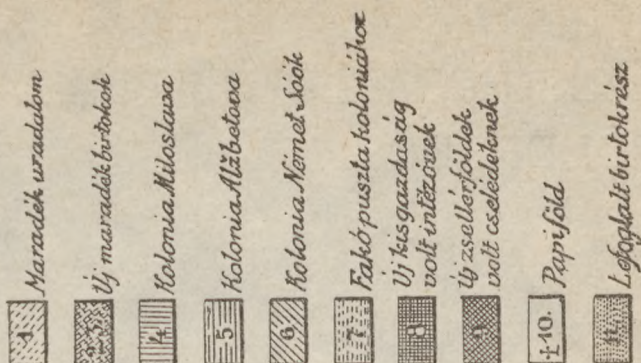 1 Maradék uradalom
2-3 Új maradék birtokok
4 Kolonia Miloslava
5 Kolonia Alžbetova
6 Kolonia Német Soók
7 Fakó puszta koloniához
8 Új kisgazdaság
volt intézőnek
9 Új zsellérföldek
volt cselédeknek
±10. Papiföld
11 Lefoglalt birtokrész